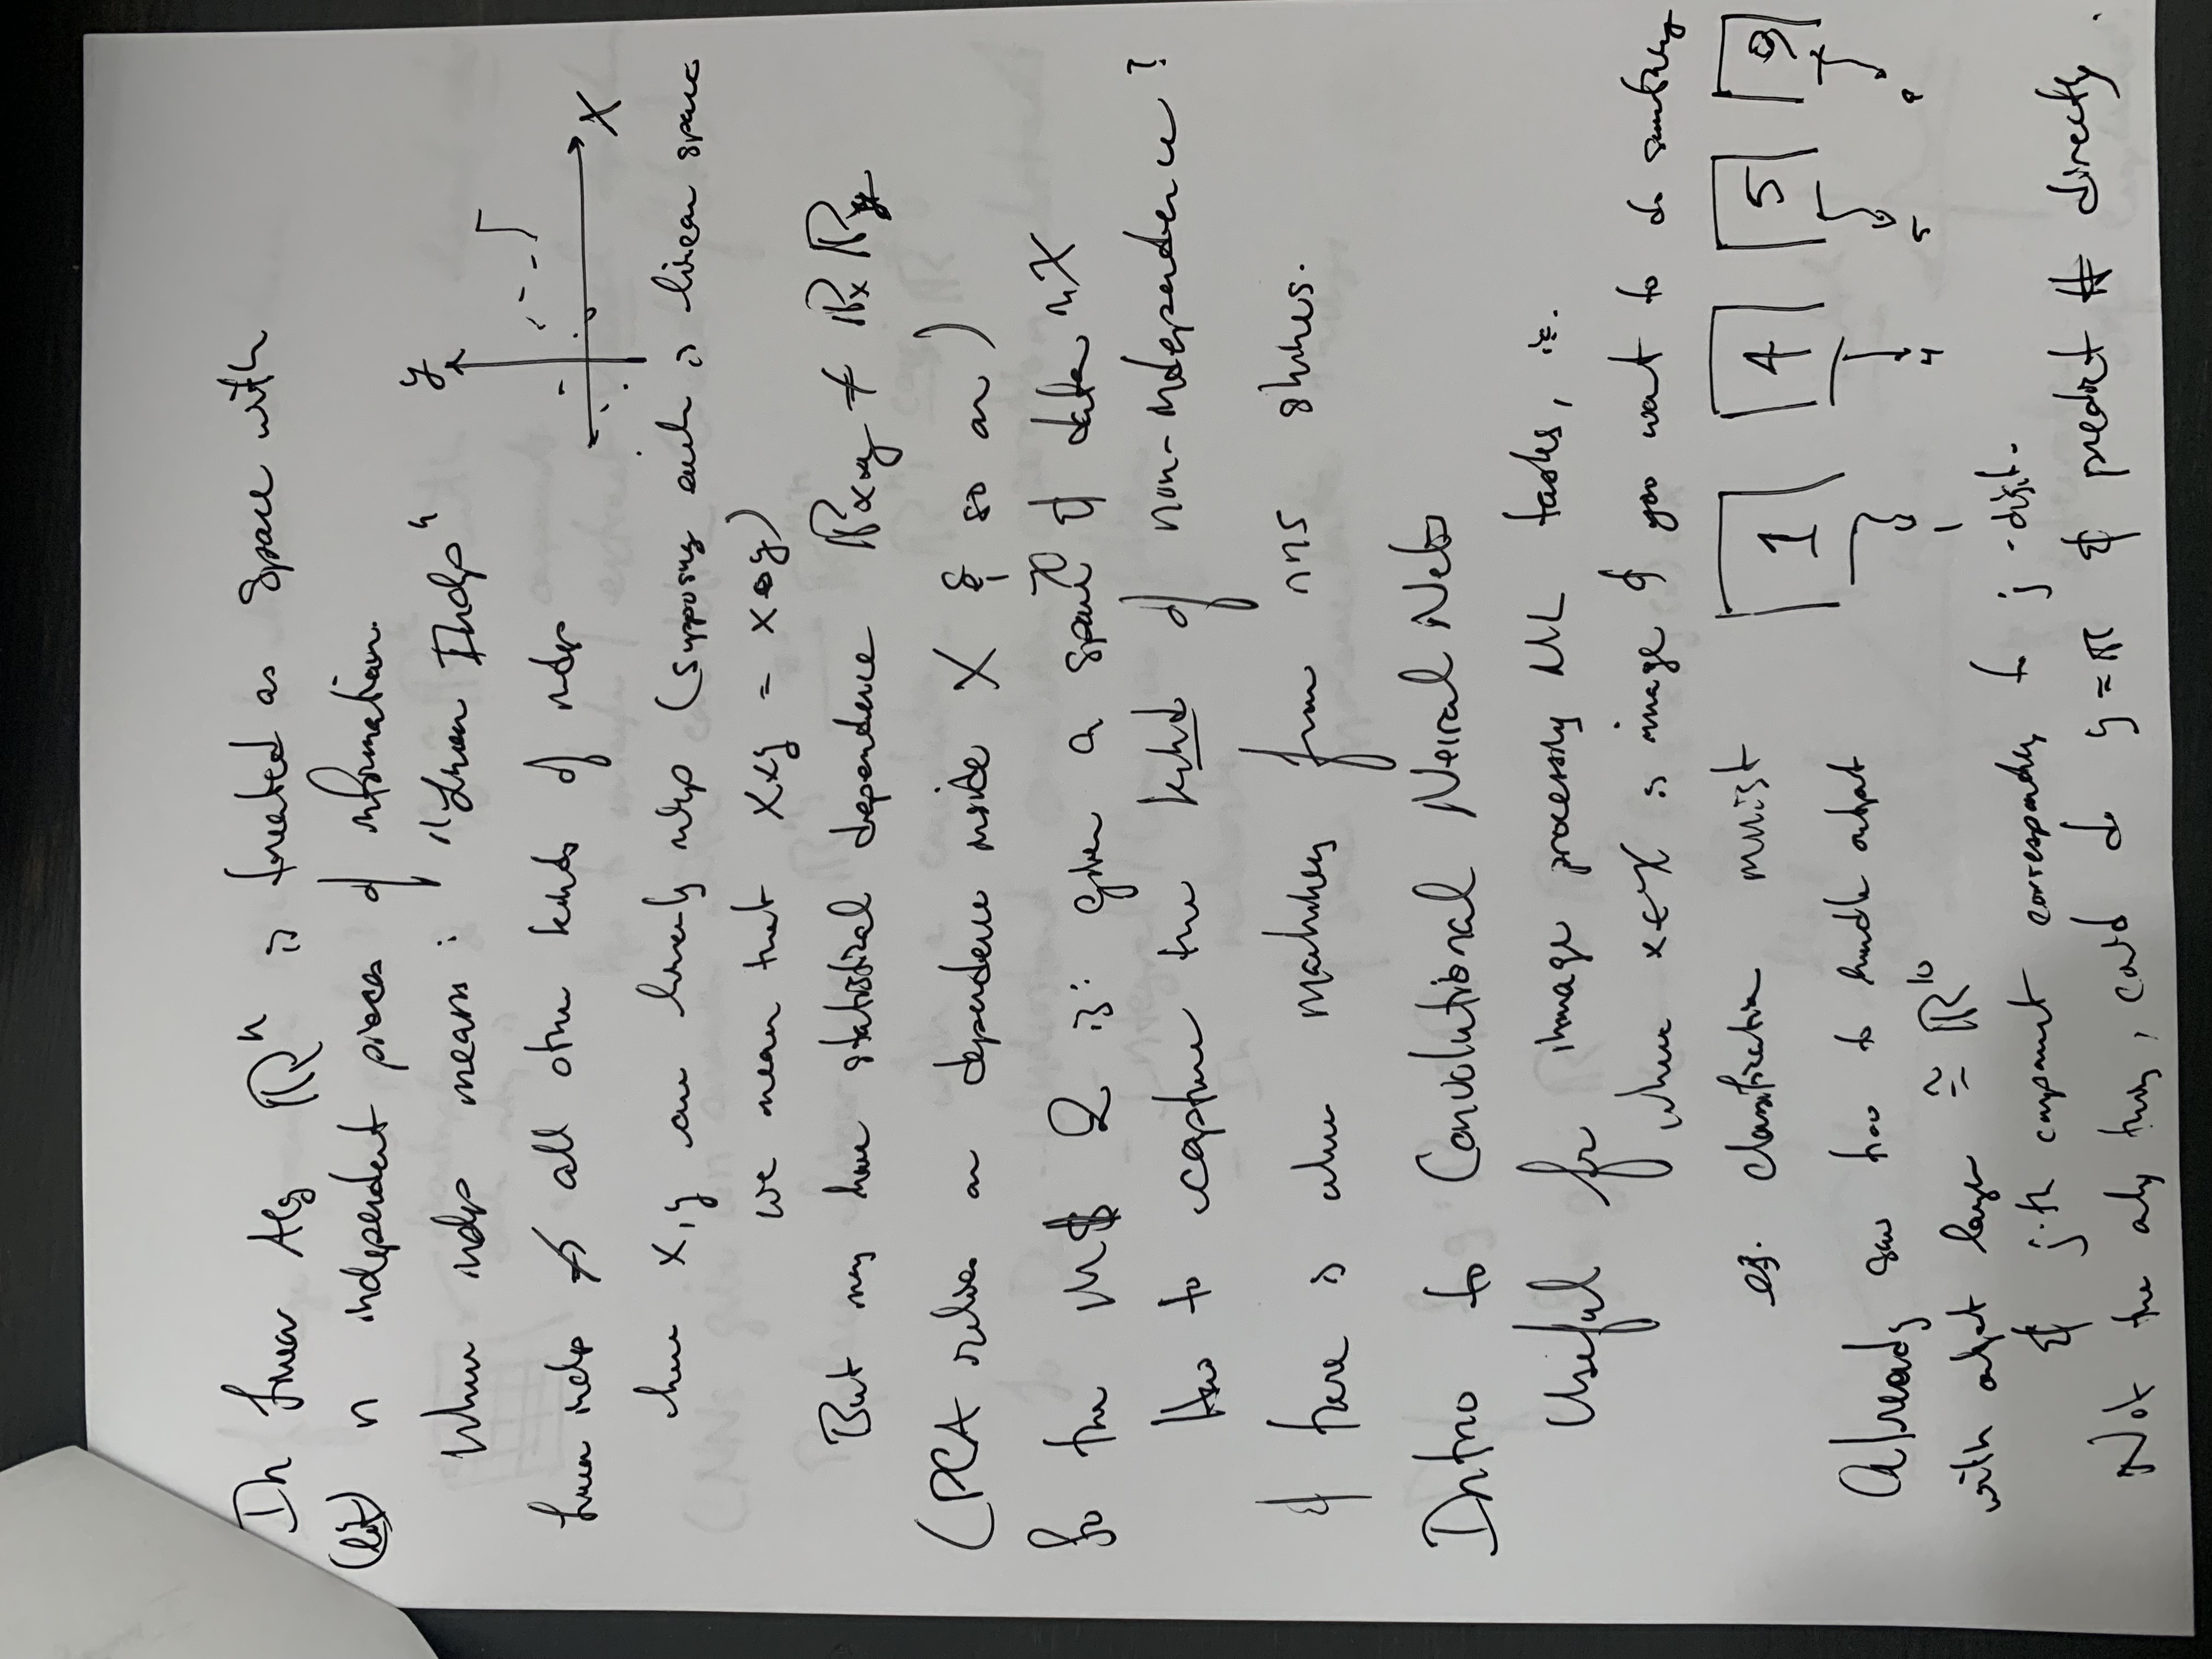 In Linear Alg ℝⁿ is treated as space with
n independent pieces of information.
When indep means: "Linear Indp"
y
X
Linear indp ⇏ all other kinds of indp
here x, y are linearly indp (supposing each is linear space
we mean that X×y = X⊕y)
But may have statistical dependence ℙx×y ≠ ℙx ℙy
(PCA relies on dependence inside X & so on)
So the Q is: given a space X & data in X
How to capture the kind of non-independence?
& there is where machinery from nns shines.
Intro to Convolutional Neural Nets
Useful for image processing ML tasks, ie.
where x∈X is image & you want to do something
eg. classification mnist
1 4 5 9
Already saw how to handle output
1 4 5 9
with output layer ≅ ℝ¹⁰
& j-th component corresponding to j-digit.
Not the only thing, could do y=ℝ & predict # directly.